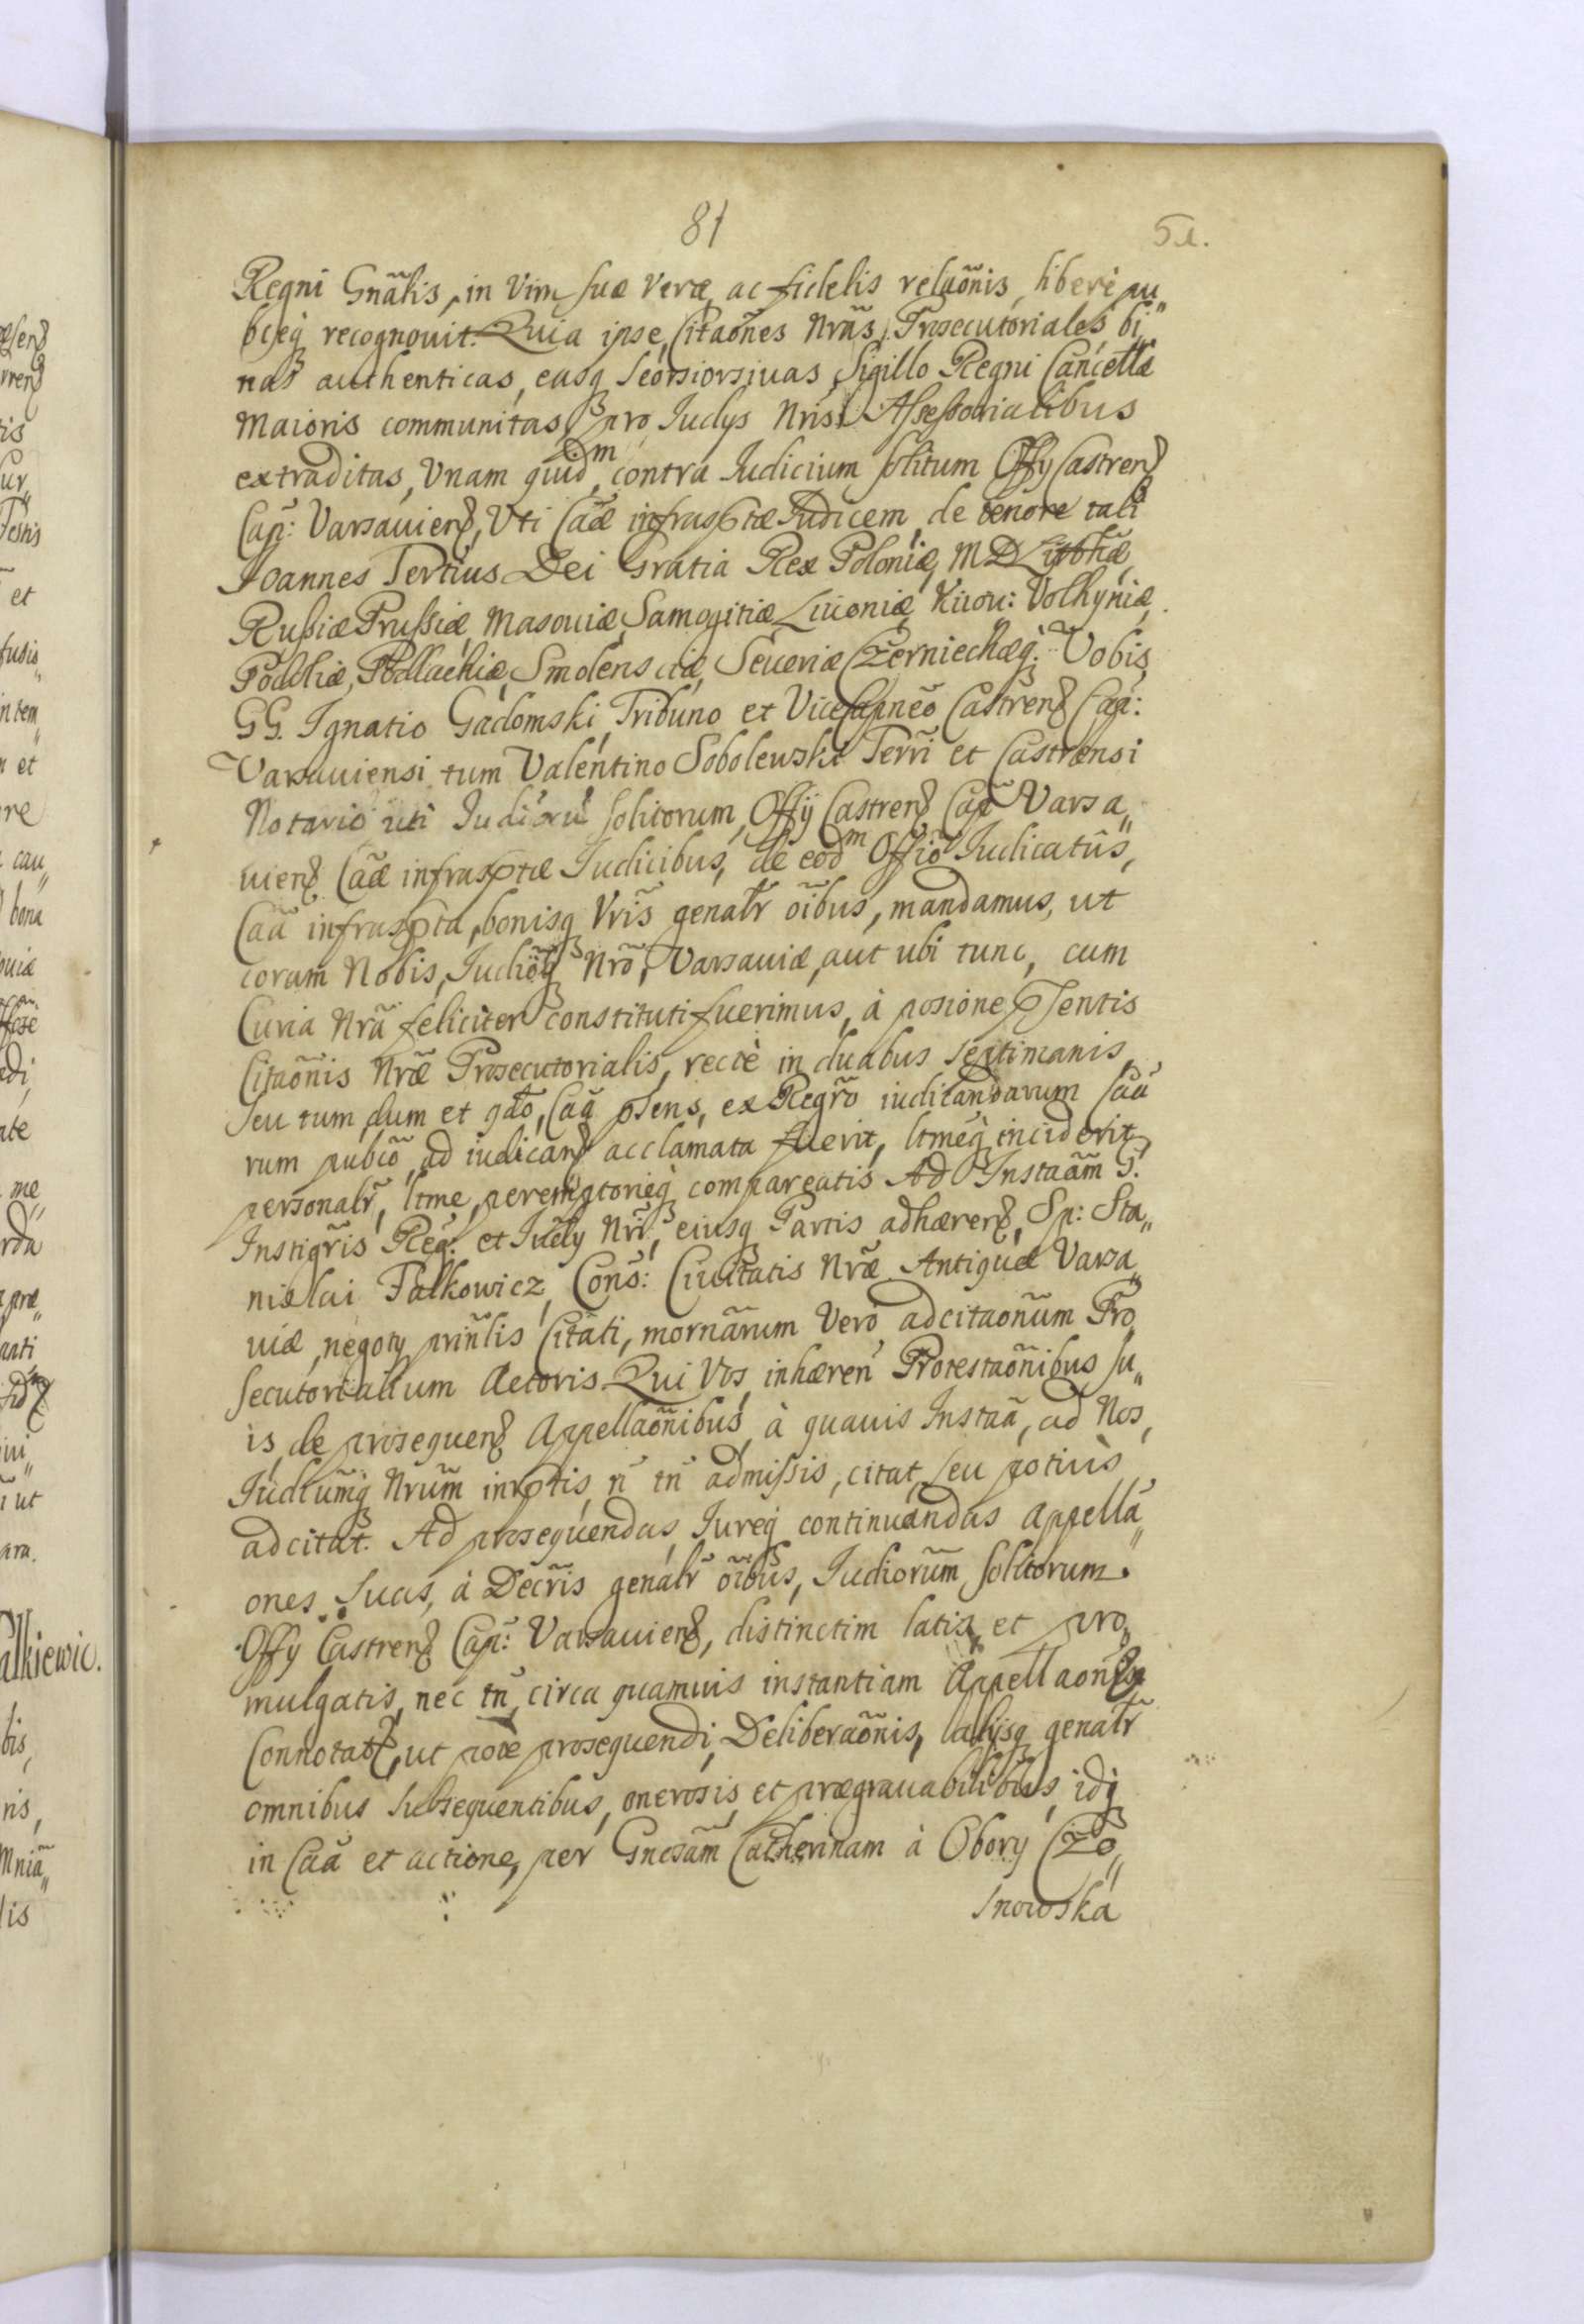 81
51.
Regni Gnãlis, in Vim suæ veræ ac fidelis relaõnis, liberè pu„
bceq recognouit. Quia ipse, Citaõnes Nrãs, Prosecutoriales, bi„
nas authenticas, easq seorsiorsiuas, Sigillo Regni Cancellæ
Maioris communitas, pro Iudys Nris Assessorialibus
extraditas, Vnam quidm, contra Iudicium solitum Offy Castren
Cap: Varsauien, Vti Cãæ infrasptæ Iudicem, de tenore tali
Ioannes Tertius Dei Gratia Rex Poloniæ, M D Litthæ,
Russiæ Prussiæ, Masouiæ, Samogitiæ, Liuoniæ, Kiiou: Volhyniæ,
Podoliæ, Podlachiæ, Smolensciæ, Seueriæ Czerniechæq. Vobis
GG. Ignatio Gadomski, Tribuno et Vicecapneo Castren Cap:
Varsauiensi, tum Valentino Sobolewski Terri et Castrensi
Notario uti Iudioru solitorum, Offij Castren Cap Varsa„
uien Cãæ infrasptæ Iudicibus, de eodm Offiõ Iudicatûs,
Cãa infraspta, bonisq Vris genalr oibus, mandamus, ut
coram Nobis, Iudioq Nrõ, Varsauiæ, aut ubi tunc, cum
Curia Nrã feliciter constituti fuerimus, à posione psentis
Citaõnis Nrãe Prosecutorialis, rectè in duabus septimanis
seu tum, dum et qdo, Caã psens, ex Regrõ iudicandarum Caã
rum pubcõ, ad iudican acclamata fuerit, ltmeq inciderit,
personalr, ltme, peremptorieq compareatis Ad Instaãm G.
Instigris Reg: et Iudy Nri, eiusq Partis adhæren, Sp: Sta„
nislai Falkowicz, Cons: Ciuitatis Nrãe Antiquæ Varsa„
uiæ, negoty prinlis Citati, mornãrum Verò adcitaonum Pro„
secutorialium Actoris. Qui Vos, inhæren Protestaõnibus su„
is, de prosequen Appellaõnibus, à quauis Instaã, ad Nos,
Iudiumq Nrum inrptis, n tn admissis, citat, seu potiùs
adcitat. Ad prosequendas, Iureq continuandas Appellã„
ones suas, à Decris genalr oibus, Iudiorum solitorum
Offy Castren Cap: Varsauien, distinctim latis, et pro„
mulgatis, nec tn, circa quamuis instantiam Appellaonis
Connotat, ut pote prosequendi, Deliberaõnis, alijsq genalr
omnibus subsequentibus, onerosis, et prægrauabilibus, idq
in Caã et actione, per Gnosam Catherinam à Obory Czo„
snowska